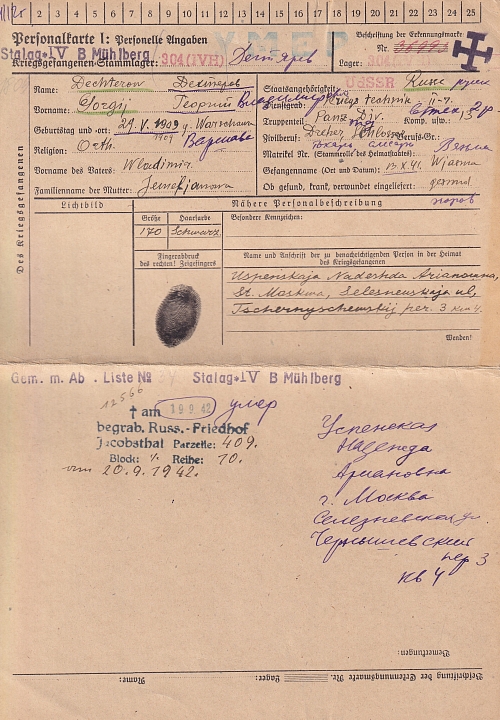 1 2 3 4 5 6 7 8 9 10 11 12 13 14 15 16 17 18 19 20 21 22 23 24 25
Personalkarte I: Personelle Angaben
УМЕР
Beschriftung der Erkennungsmarke
Nr.
Stalag IV B Mühlberg
Kriegsgefangenen-Stammlager: 304 (IV H)
Lager: 304
Des Kriegsgefangenen
Name: Dechterow Дехтеров
Staatsangehörigkeit: UdSSR Russe русск
Vorname: Georgij Георгий Владимирович
Dienstgrad: Kriegstechnik II-r.
Truppenteil: Panz. Div. Komp. usw.:
Geburtstag und -ort: 29.V.1909 Warschawa
1909 Варшава
Zivilberuf: Dreher Schlosser Berufs-Gr.:
токарь слесарь
Religion: Orth.
Matrikel Nr. (Stammrolle des Heimatstaates): Вязьма
Vorname des Vaters: Wladimir
Gefangennahme (Ort und Datum): 13.X.41. Wjasma
Familienname der Mutter:
Ob gesund, krank, verwundet eingeliefert: gesund
здоров
Lichtbild
Nähere Personalbeschreibung
Größe Haarfarbe Besondere Kennzeichen:
170 Schwarz
Fingerabdruck
des rechten! Zeigefingers
Name und Anschrift der zu benachrichtigenden Person in der Heimat
des Kriegsgefangenen
Uspenskaja Nadeshda Arianowna,
St. Moskwa, Selesnewskaja ul,
Tschernyschewskij per. 3 kw 4.
Wenden!
Gem. m. Ab . Liste № Stalag IV B Mühlberg
12566
† am 19.9.42 умер
begrab. Russ.-Friedhof
Jacobsthal Parzelle: 409.
Block: Reihe: 10.
20.9.1942.
Успенская
Надежда
Ариановна
г. Москва
Селезневская ул
Чернышевский
пер 3
кв 4
Bemerkungen:
Beschriftung der Erkennungsmarke Nr. Lager: Name: